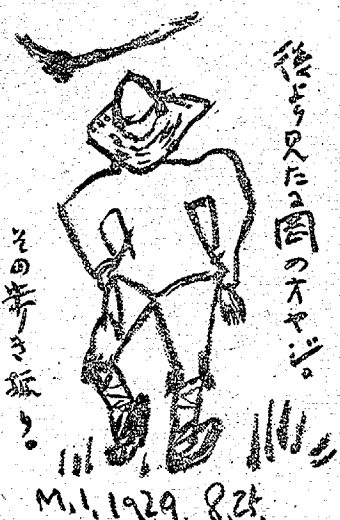 後より見たる圏のオヤジ。
その歩き振り。
M.I. 1929. 8.25.